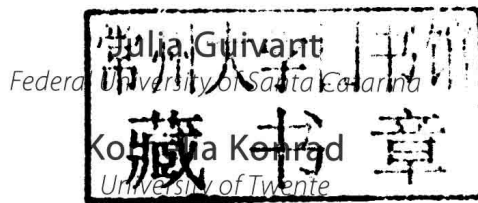 Julia Guivant
常州大学
Federal University of Santa Catarina
藏书章
Kornelia Konrad
University of Twente